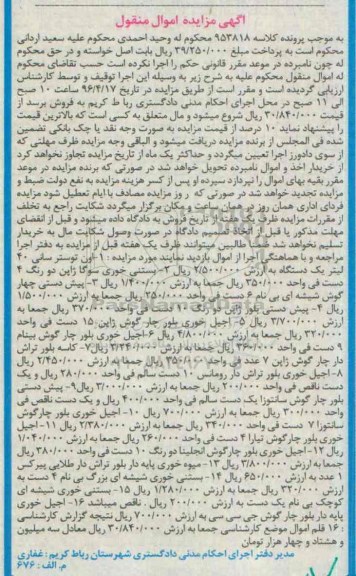 آگهی مزایده اموال منقول
به موجب پرونده کلاسه ۹۵۳۸۱۸ محکوم له وحید احمدی محکوم علیه سعید اردانی
محکوم است به پرداخت مبلغ ۳۹/۲۵۰/۰۰۰ ریال بابت اصل خواسته و در حق محکوم
له چون نامبرده در موعد مقرر قانونی حکم را اجرا نکرده است حسب تقاضای محکوم
له اموال منقول محکوم علیه به شرح زیر به وسیله این اجرا توقیف و توسط کارشناس
ارزیابی گردیده است و مقرر است از طریق مزایده در تاریخ ۹۶/۴/۱۷ ساعت ۱۰ صبح
الی ۱۱ صبح در محل اجرای احکام مدنی دادگستری ربا ط کریم به فروش برسد از
قیمت ۳۰/۸۴۰/۰۰۰ ریال شروع میشود و مال متعلق به کسی است که بالاترین قیمت
را پیشنهاد نماید ۱۰ درصد از قیمت مزایده به صورت وجه نقد یا چک بانکی تضمین
شده فی المجلس از برنده مزایده دریافت میشود و الباقی وجه مزایده ظرف مهلتی که
از سوی دادورز اجرا تعیین میگردد و حداکثر یک ماه از تاریخ مزایده تجاوز نخواهد کرد
از خریدار اخذ و اموال نامبرده تحویل خواهد شد در صورتی که برنده مزایده در موعد
مقرر بقیه بهای اموال را نپردازد سپرده او پس از کسر هزینه مزایده به نفع دولت ضبط و
مزایده تجدید خواهد شد در صورتی که روز مزایده مصادف با ایام تعطیل شود مزایده
فردای اداری همان روز در همان ساعت و مکان برگزار میگردد شکایت راجع به تخلف
از مقررات مزایده ظرف یک هفته از تاریخ فروش به دادگاه داده میشود و قبل از انقضای
مهلت مذکور یا قبل از اتخاذ تصمیم دادگاه در صورت وصول شکایت مال به خریدار
تسلیم نخواهد شد ضمنا طالبین میتوانند ظرف یک هفته قبل از مزایده به دفتر اجرا
مراجعه و با هماهنگی اجرا از اموال بازدید نمایند مورد مزایده : ۱-اون توستر سانی ۴۰
لیتر یک دستگاه به ارزش ۲/۵۰۰/۰۰۰ ریال ۲- بستنی خوری سوگا ژاپن دو رنگ ۴
دست فی واحد ۳۵۰/۰۰۰ ریال جمعا به ارزش ۱/۴۰۰/۰۰۰ ریال ۳-پیش دستی چهار
گوش شیشه ای بی نام ۲ دست فی واحد ۷۵۰/۰۰۰ ریال جمعا به ارزش ۱/۵۰۰/۰۰۰
ریال ۴- پیش دستی بلور ژاپن دو رنگ ۱۰ دست فی واحد ۳۷۰/۰۰۰ ریال جمعا به
ارزش ۳/۷۰۰/۰۰۰ ریال ۵- آجیل خوری بلور چار گوش ژاپن ۱۵ دست فی واحد
۳۲۰/۰۰۰ ریال جمعا به ارزش ۴/۸۰۰/۰۰۰ ریال ۶-آجیل خوری بلور چار گوش بینام
۹ دست فی واحد ۳۶۰/۰۰۰ ریال جمعا به ارزش ۳/۲۴۰/۰۰۰ ریال ۷- کاسه بلور تراش
دار چار گوش ژاپن ۷ عدد فی واحد ۳۵۰/۰۰۰ ریال جمعا به ارزش ۲/۴۵۰/۰۰۰ ریال
۸- آجیل خوری بلور تراش دار رومانس ۱۰ دست سالم فی واحد ۲۸۰/۰۰۰ ریال و یک
دست ناقص فی واحد ۲۰۰/۰۰۰ ریال جمعا به ارزش ۳/۰۰۰/۰۰۰ ریال ۹- پیش دستی
بلور چار گوش سانتوزا یک دست سالم فی واحد ۴۰۰/۰۰۰ ریال و یک دست ناقص فی
واحد ۳۰۰/۰۰۰ ریال جمعا به ارزش ۷۰۰/۰۰۰ ریال ۱۰- آجیل خوری بلور چارگوش
سانتوزا ۷ دست فی واحد ۳۴۰/۰۰۰ ریال جمعا به ارزش ۲/۳۸۰/۰۰۰ ریال ۱۱- آجیل
خوری بلور چارگوش تیارا ۴ دست فی واحد ۲۶۰/۰۰۰ ریال جمعا به ارزش ۱/۰۴۰/۰۰۰
ریال ۱۲- آجیل خوری بلور چارگوش آنجلینا دو رنگ ۱۰ دست فی واحد ۳۸۰/۰۰۰ ریال
جمعا به ارزش ۳/۸۰۰/۰۰۰ ریال ۱۳- میوه خوری پایه دار بلور تراش دار طلایی پیرکس
۱ عدد به ارزش ۶۵۰/۰۰۰ ریال ۱۴- بستنی خوری شیشه ای بزرگ بی نام ۴ دست به
ارزش ۳۲۰/۰۰۰ ریال جمعا به ارزش ۱/۲۸۰/۰۰۰ ریال ۱۵- بستنی خوری شیشه ای
کوچک بی نام یک دست به ارزش ۲۰۰/۰۰۰ ریال ناقص میباشد ۱۶- آجیل خوری
پایه دار بلور چار گوش جی سی سی به ارزش ۷۰۰/۰۰۰ ریال نتیجه گزارش کارشناسی
: ۱۶ قلم اموال موضع کارشناسی جمعا به ارزش ۳۰/۸۴۰/۰۰۰ ریال معادل سه میلیون
و هشتاد و چهار هزار تومان
مدیر دفتر اجرای احکام مدنی دادگستری شهرستان رباط کریم : غفاری
م. الف : ۶۷۶